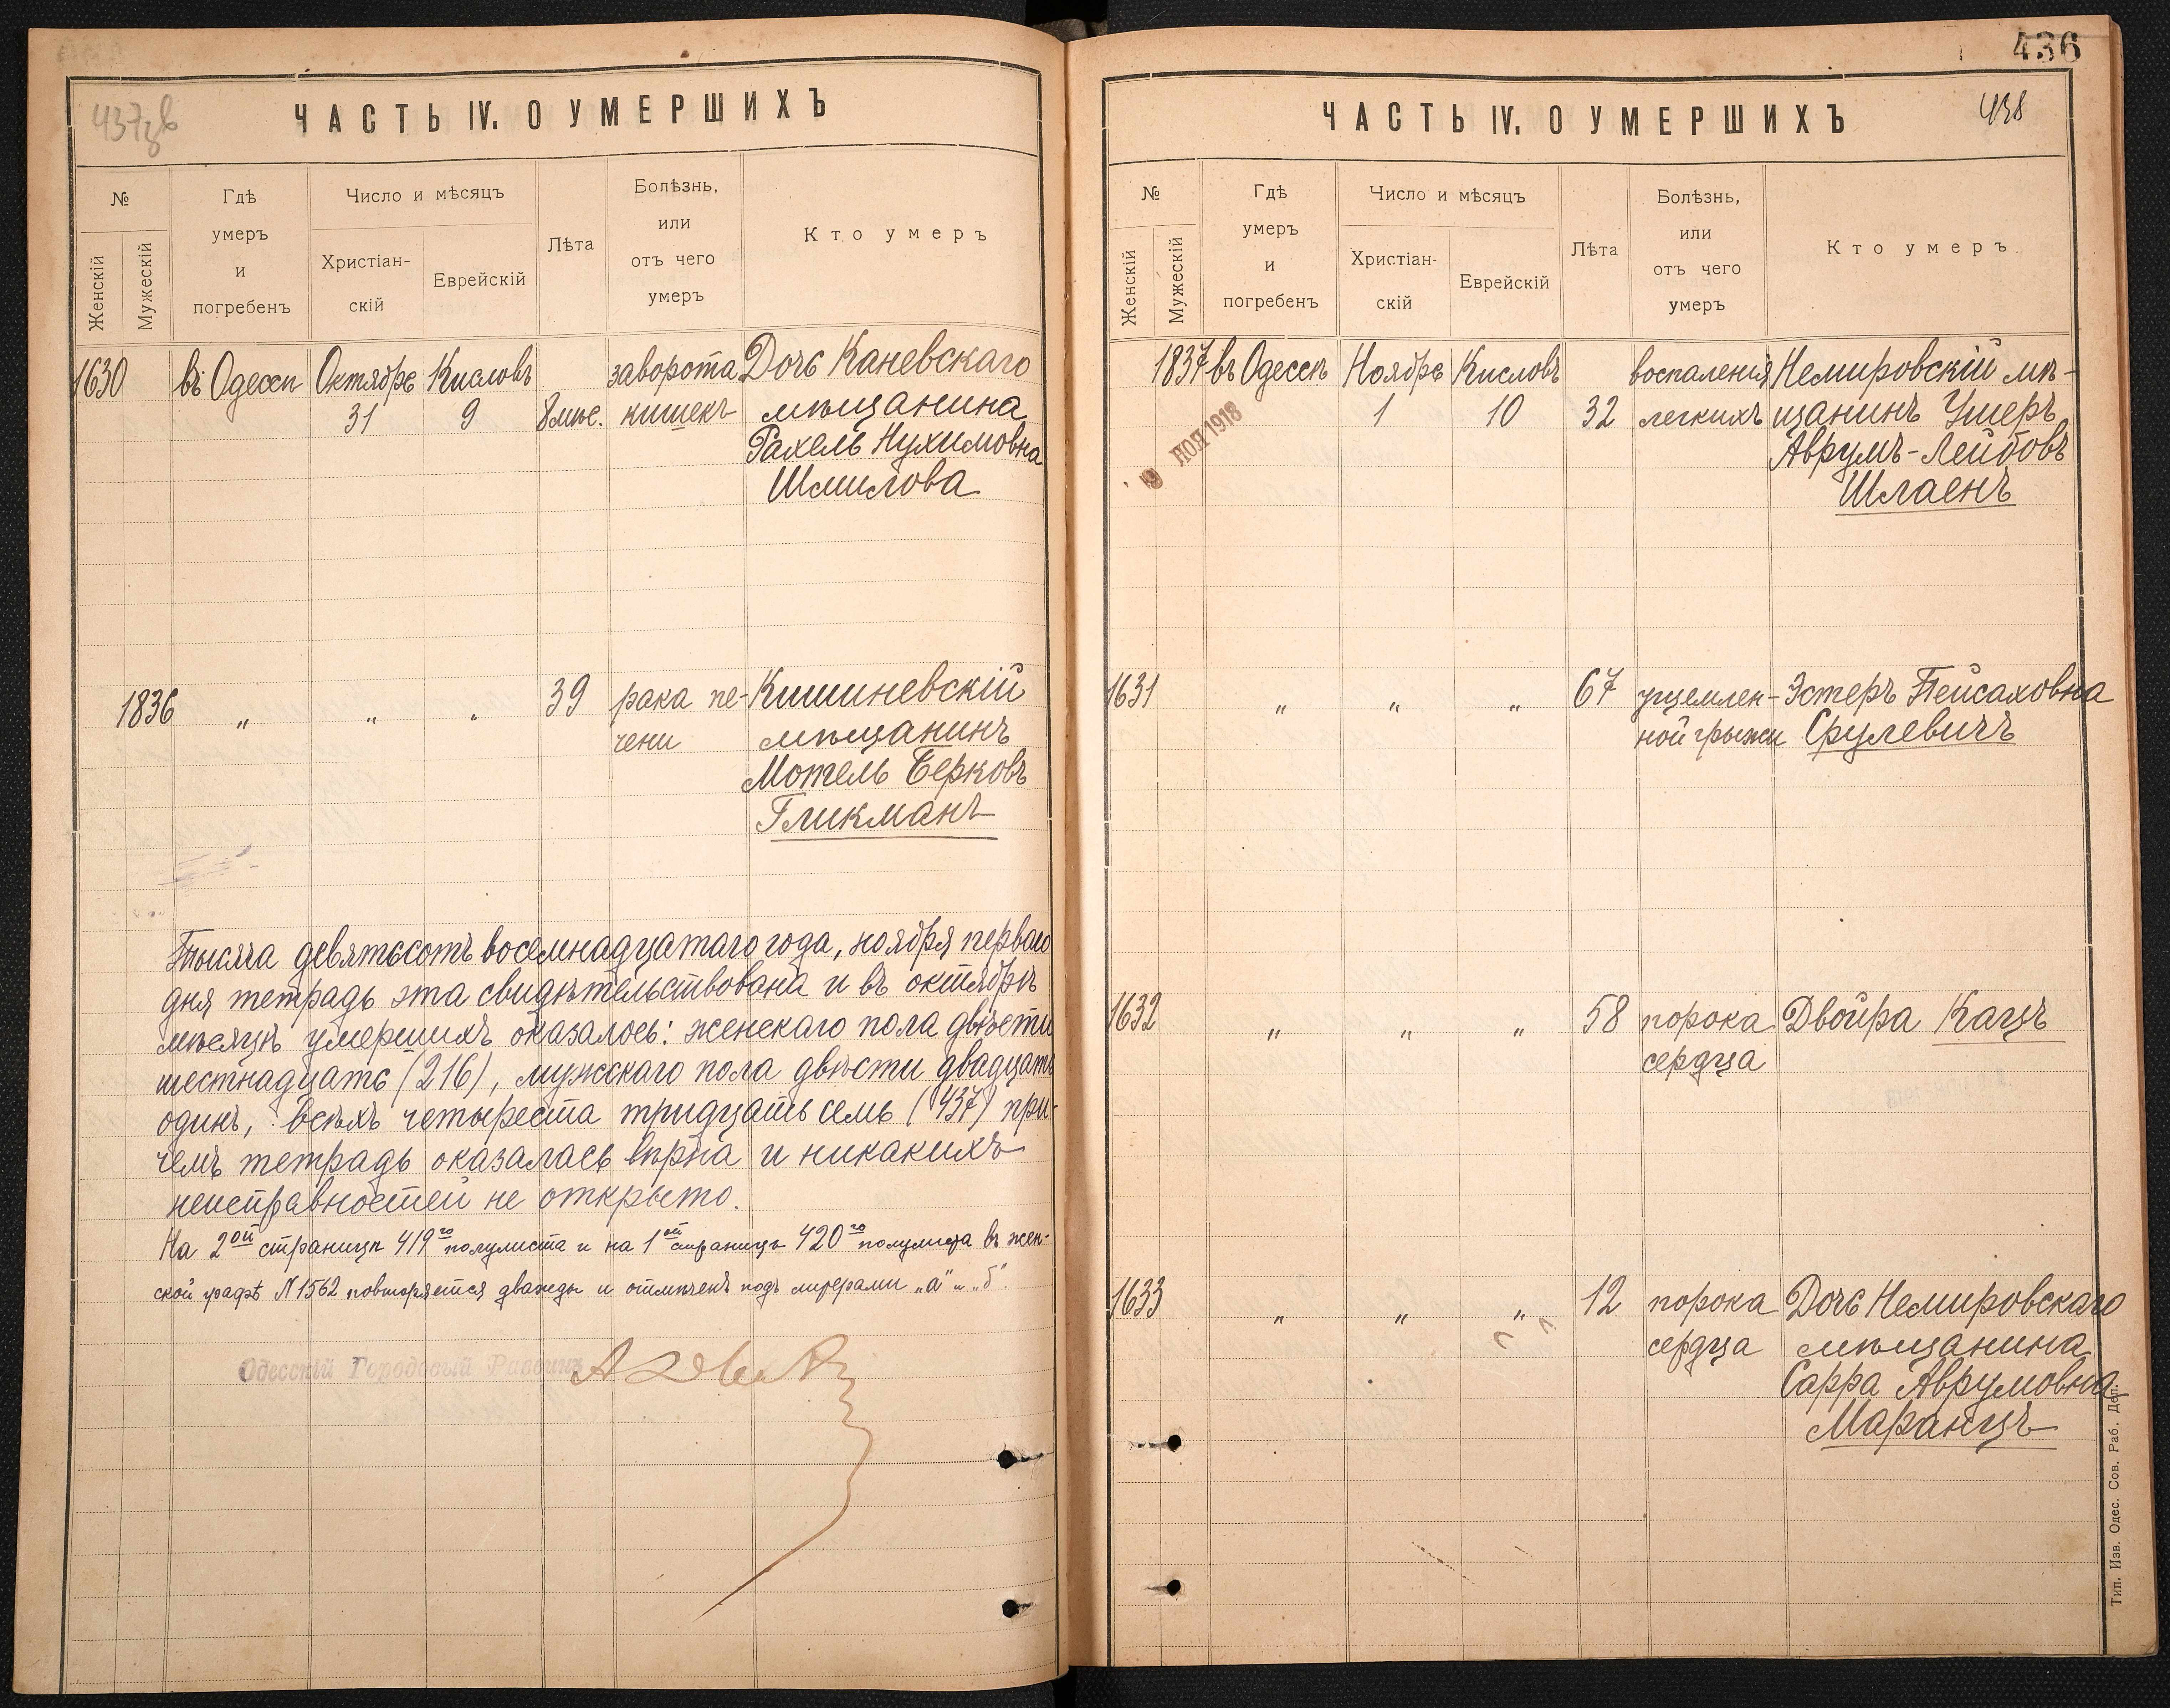 ЧАСТЬ IV. О УМЕРШИХЪ
№
Женскій
Мужескій
Гдѣ
умеръ
и
погребенъ
Число и мѣсяцъ
Христіан-
скій
Еврейскій
Лѣта
Болѣзнь,
или
отъ чего
умеръ
Кто умеръ
1630 въ Одессѣ Октябрь Кисловъ заворота Дочь Каневскаго
31 9 8 мѣс. кишекъ мѣщанина
Рахель Нухимовна
Шмилова
1836 „ „ „ 39 рака пе- Кишиневскій
чени мѣщанинъ
Мотель Берковъ
Гликманъ
Тысяча девятьсотъ восемнадцатаго года, ноября перваго
дня тетрадь эта свидѣтельствована и въ октябрѣ
мѣсяцѣ умершихъ оказалось: женскаго пола двѣсти
шестнадцать (216), мужскаго пола двѣсти двадцать
одинъ, всѣхъ четыреста тридцать семь (437) при-
чемъ тетрадь оказалась вѣрна и никакихъ
неисправностей не открыто.
На 2ой страницѣ 419го полулиста и на 1ой страницѣ 420го полулиста въ жен-
ской графѣ N 1562 повторяется дважды и отмѣченъ подъ литерами „а" и „б".
Одесскій Городовый Раввинъ
436
ЧАСТЬ IV. О УМЕРШИХЪ
438
№
Женскій
Мужескій
Гдѣ
умеръ
и
погребенъ
Число и мѣсяцъ
Христіан-
скій
Еврейскій
Лѣта
Болѣзнь,
или
отъ чего
умеръ
Кто умеръ
1837 въ Одессѣ Ноябрь Кисловъ воспаленія Немировскій мѣ-
1 10 32 легкихъ щанинъ Ушеръ
Аврумъ-Лейбовъ
Шлаенъ
НОЯ 1918
1631 „ „ „ 67 ущемлен- Эстеръ Пейсаховна
ной грыжи Срулевичъ
1632 „ „ „ 58 порока Двойра Кацъ
сердца
1633 „ „ „ 12 порока Дочь Немировскаго
сердца мѣщанина
Сарра Аврумовна
Маранцъ
Тип. Изв. Одес. Сов. Раб. Деп.